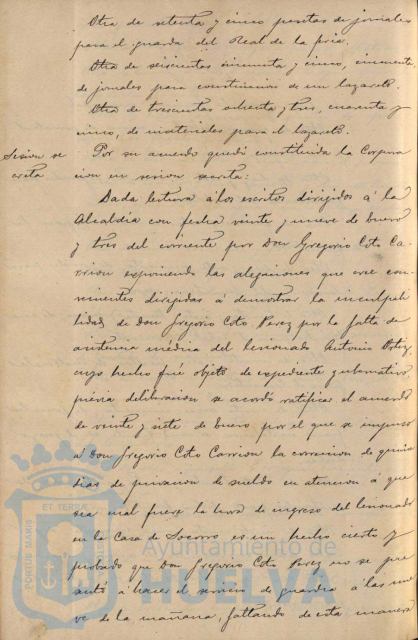 Otra de setenta y cinco pesetas de jornales
para el guarda del Real de la feria.
Otra de seiscientas cincuenta y cinco, cincuenta
de jornales para construccion de un lazareto.
Otra de trescientas ochenta y tres, cuarenta y
cinco, de materiales para el lazareto.
Sesion se
creta
Por su acuerdo quedó constituida la Corpora
cion en sesion secreta:
Dada lectura á los escritos dirijidos á la
Alcaldia con fecha veinte y nueve de Enero
y tres del corriente por Don Gregorio Coto Ca-
rrion exponiendo las alegaciones que cree con-
vinientes dirijidas á demostrar la inculpabi
lidad de Don Gregorio Coto Perez por la falta de
asistencia médica del lesionado Antonio Ortiz,
cuyo hecho fué objeto de expediente gubernativo,
prévia deliberacion se acordó ratificar el acuerdo
de veinte y siete de Enero por el que se impuso
a Don Gregorio Coto Carrion la correccion de quince
dias de privacion de sueldo en atencion á que
sea cual fuere la hora de ingreso del lesionado
en la Casa de Socorro es un hecho cierto y
probado que Don Gregorio Coto Perez no se pre
sentó á hacer el servicio de guardia á las nue
ve de la mañana, faltando de esta manera
PORTUS MARIS ET TERRAE
Ayuntamiento de
HUELVA